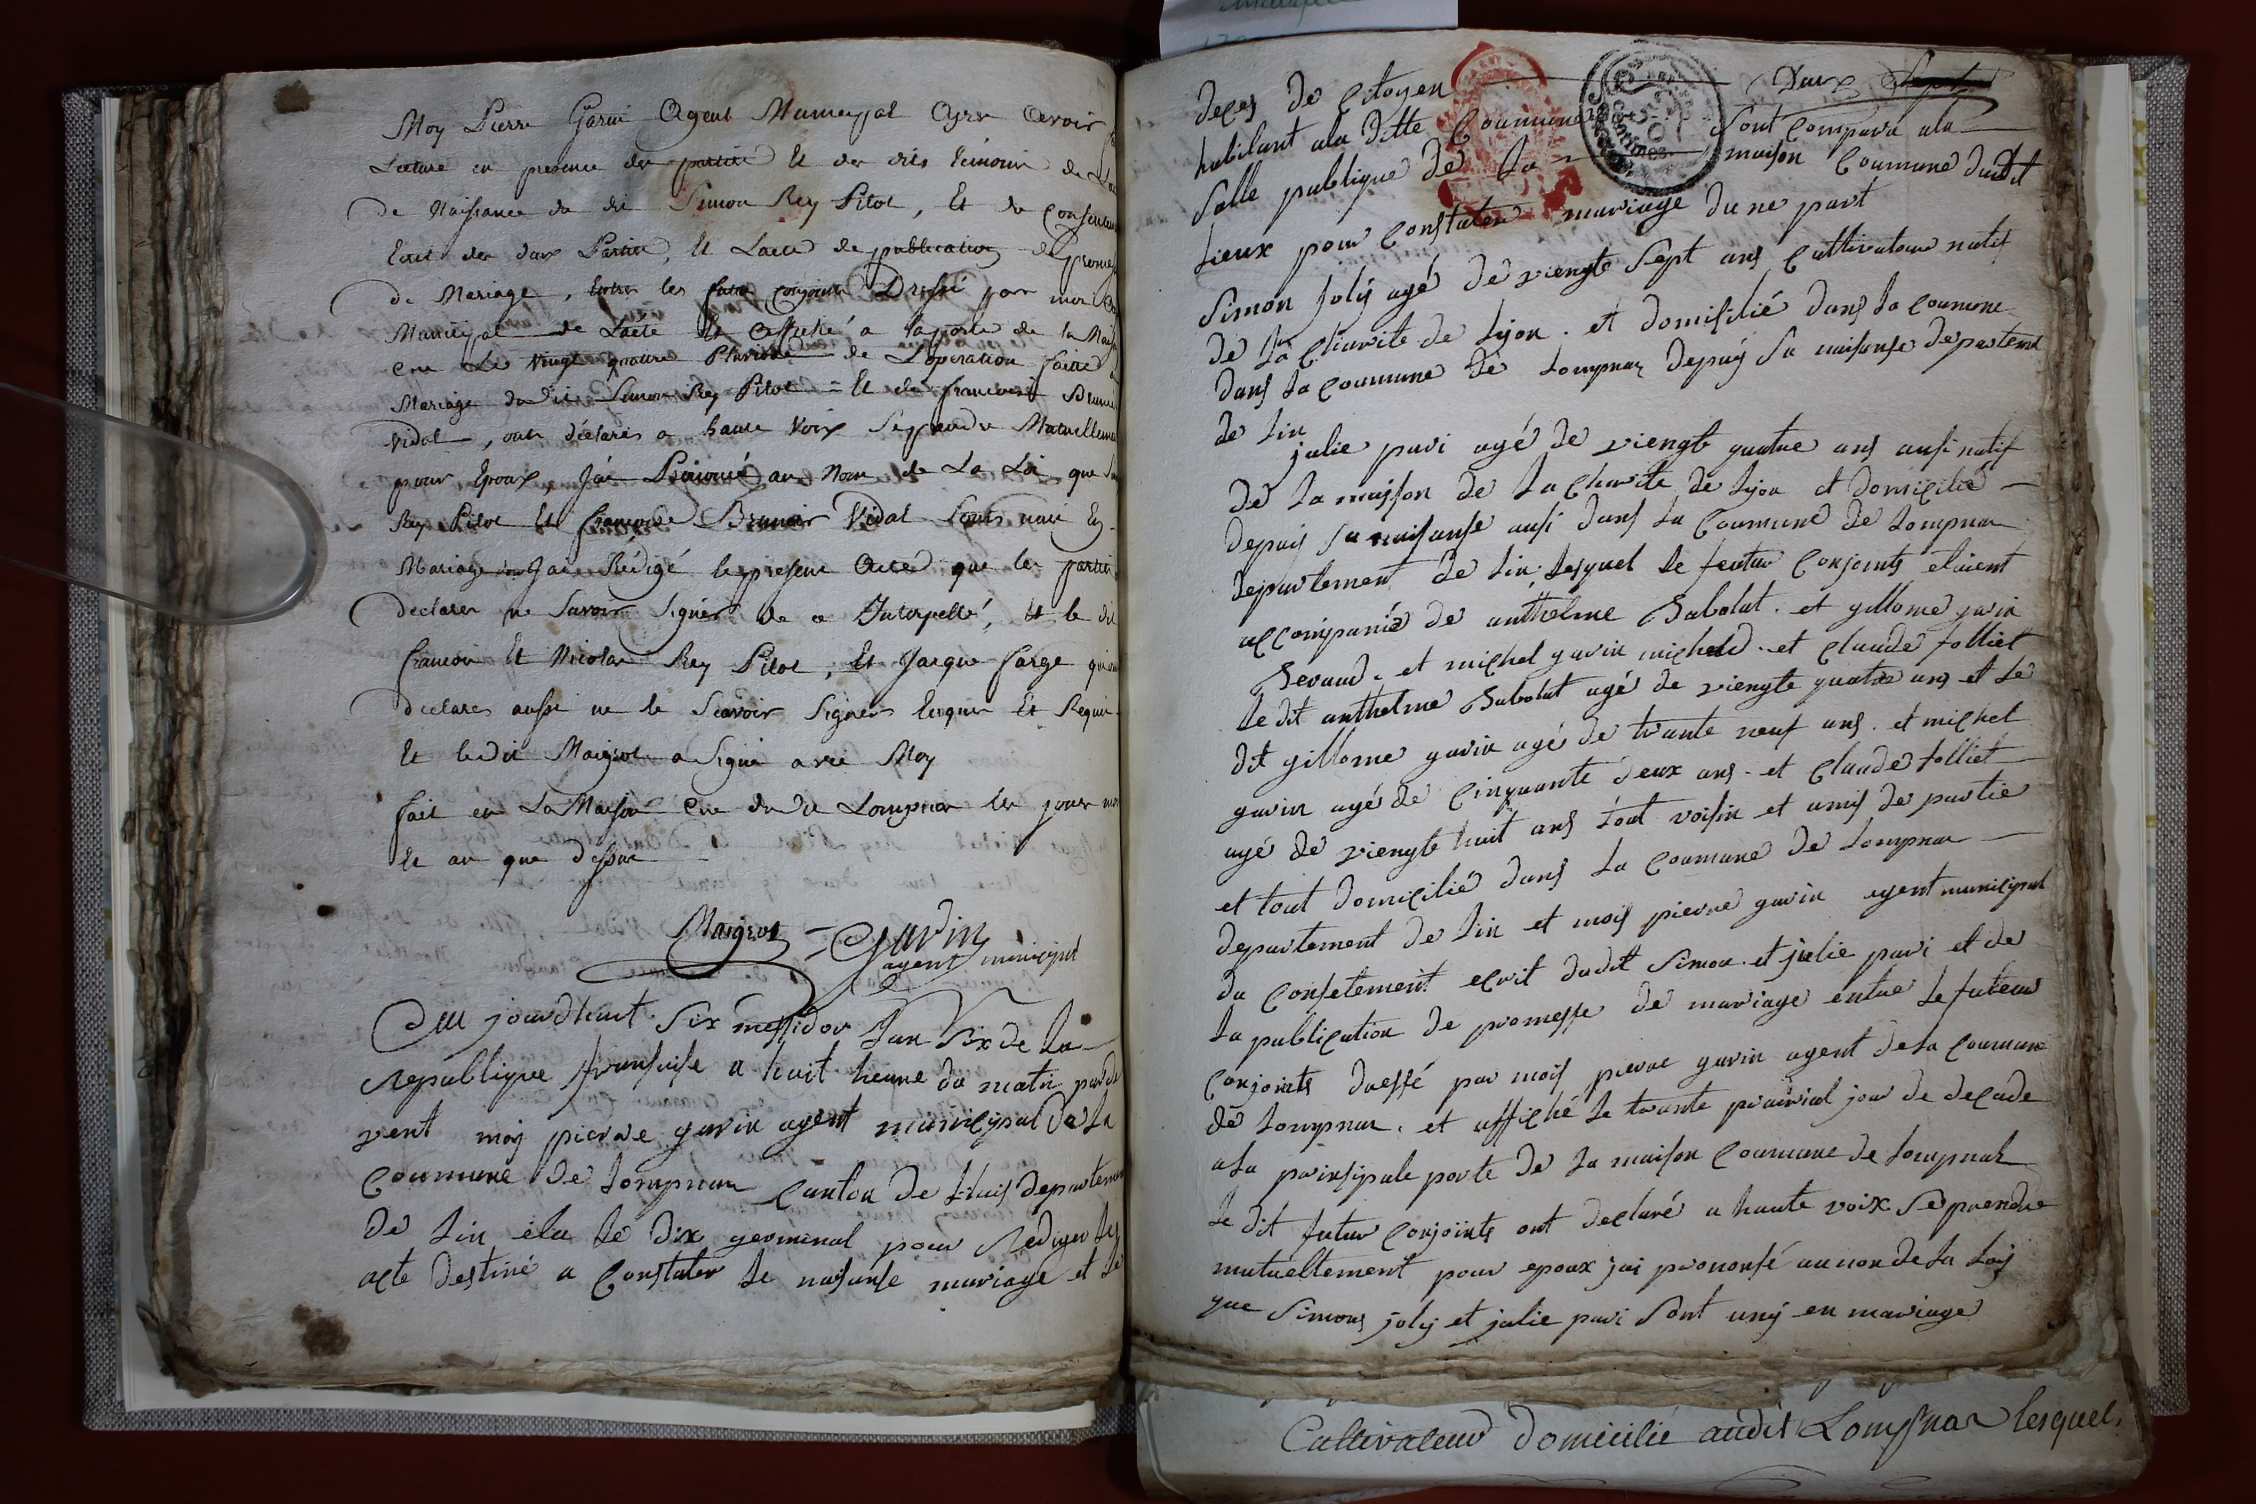 Moy Pierre Garin Agent Municipal Apres avoir
Lecture en presence des parties Et des dits temoins de
de Naissance du dit Simon Rey Pilot, Et de
Ecrit des deux Parties, Et Lacte de publication de
de Mariage, Entre les futur conjoints Dressé par moi
Municipal de Lacte et affiché a la porte de la
Cne Le vingt quatre Pluviose de Loperation faitte
Mariage du dit Simon Rey Pilot = Et de francoise
Vidal, ont déclarés a haute Voix Se prendre Mutuelleme
pour Epoux, Jai Prononcé au Nom de La Loi que
Rey Pilot Et francoise Brunoir Vidal Sont unis En
Mariage Jai Rédigé le present Acte que les parties
declarer ne Savoir Signer de ce Interpellé, Et le dit
francois Et Nicolas Rey Pilot, Et Jacque farge
declarer aussi ne le Scavoir Signer Enquis Et Requis
Et ledit Maigrot a Signé avec Moy
fait en La Maison Cne du dit Lompnar les jour
Et an que dessus
Maigrot = Garin
agent municipal
Au jourdhuit Six messidor Lan Six de la
republique fransaise a huit heure du matin par de
vent moy pierre garin agent municipal de la
Coumune de Lompnar Canton de Lhuis departement
de Lin élu le dix germinal pour Rediger les
acte destiné a Constater le naisanse mariage et le
deces de Citoyen
Deux
habitant ala ditte Coumune Sont Comparu ala
Salle publique de La maison Coumune dudit
Lieux pour Constater mariage dune part
Simon Joly agé de viengte Sept ans Cultivateur natif
de La Charite de Lyon. et domisilié dans la Coumune
dans la Coumune de Lompnaz depuÿ Sa naisanse departement
de Lin
julie pari agé de viengte quatre ans ausi natif
de La maison de La Charite de Lyon et domicilié
depuis Sa naisanse ausi dans La Coumune de Lompnar
departement de Lin. Lesquel le feutur Conjoints etaient
accompanié de anthelme Sabolat. et gillome garin
Sevaud. et michel garin micheld. et Claude folliet
le dit anthelme Sabolat agé de viengte quatre ans et le
dit gillome garin agé de trante neuf ans. et michel
garin agé de Cinquante deux ans. et Claude folliet
agé de viengte huit ans tout voisin et amis de partie
et tout domicilié dans La Coumune de Lompnar
departement de Lin et mois pierre garin agent municipal
du Consetement ecrit dudit Simon et julie pari et de
La publication de promesse de mariage entre le futeur
Conjoints dressé par mois pierre garin agent de la Coumune
de Lompnar. et affiché le trante prairial jour de decade
a La prinsipale porte de La maison Coumune de Lompnar
le dit futur Conjoints ont declaré a haute voix Se prendre
mutuellement pour epoux jai prononsé aunon de La Loy
que Simons joly et julie pari Sont unÿ en mariage
Cultivateur domicilié audit Lompnar lesquels